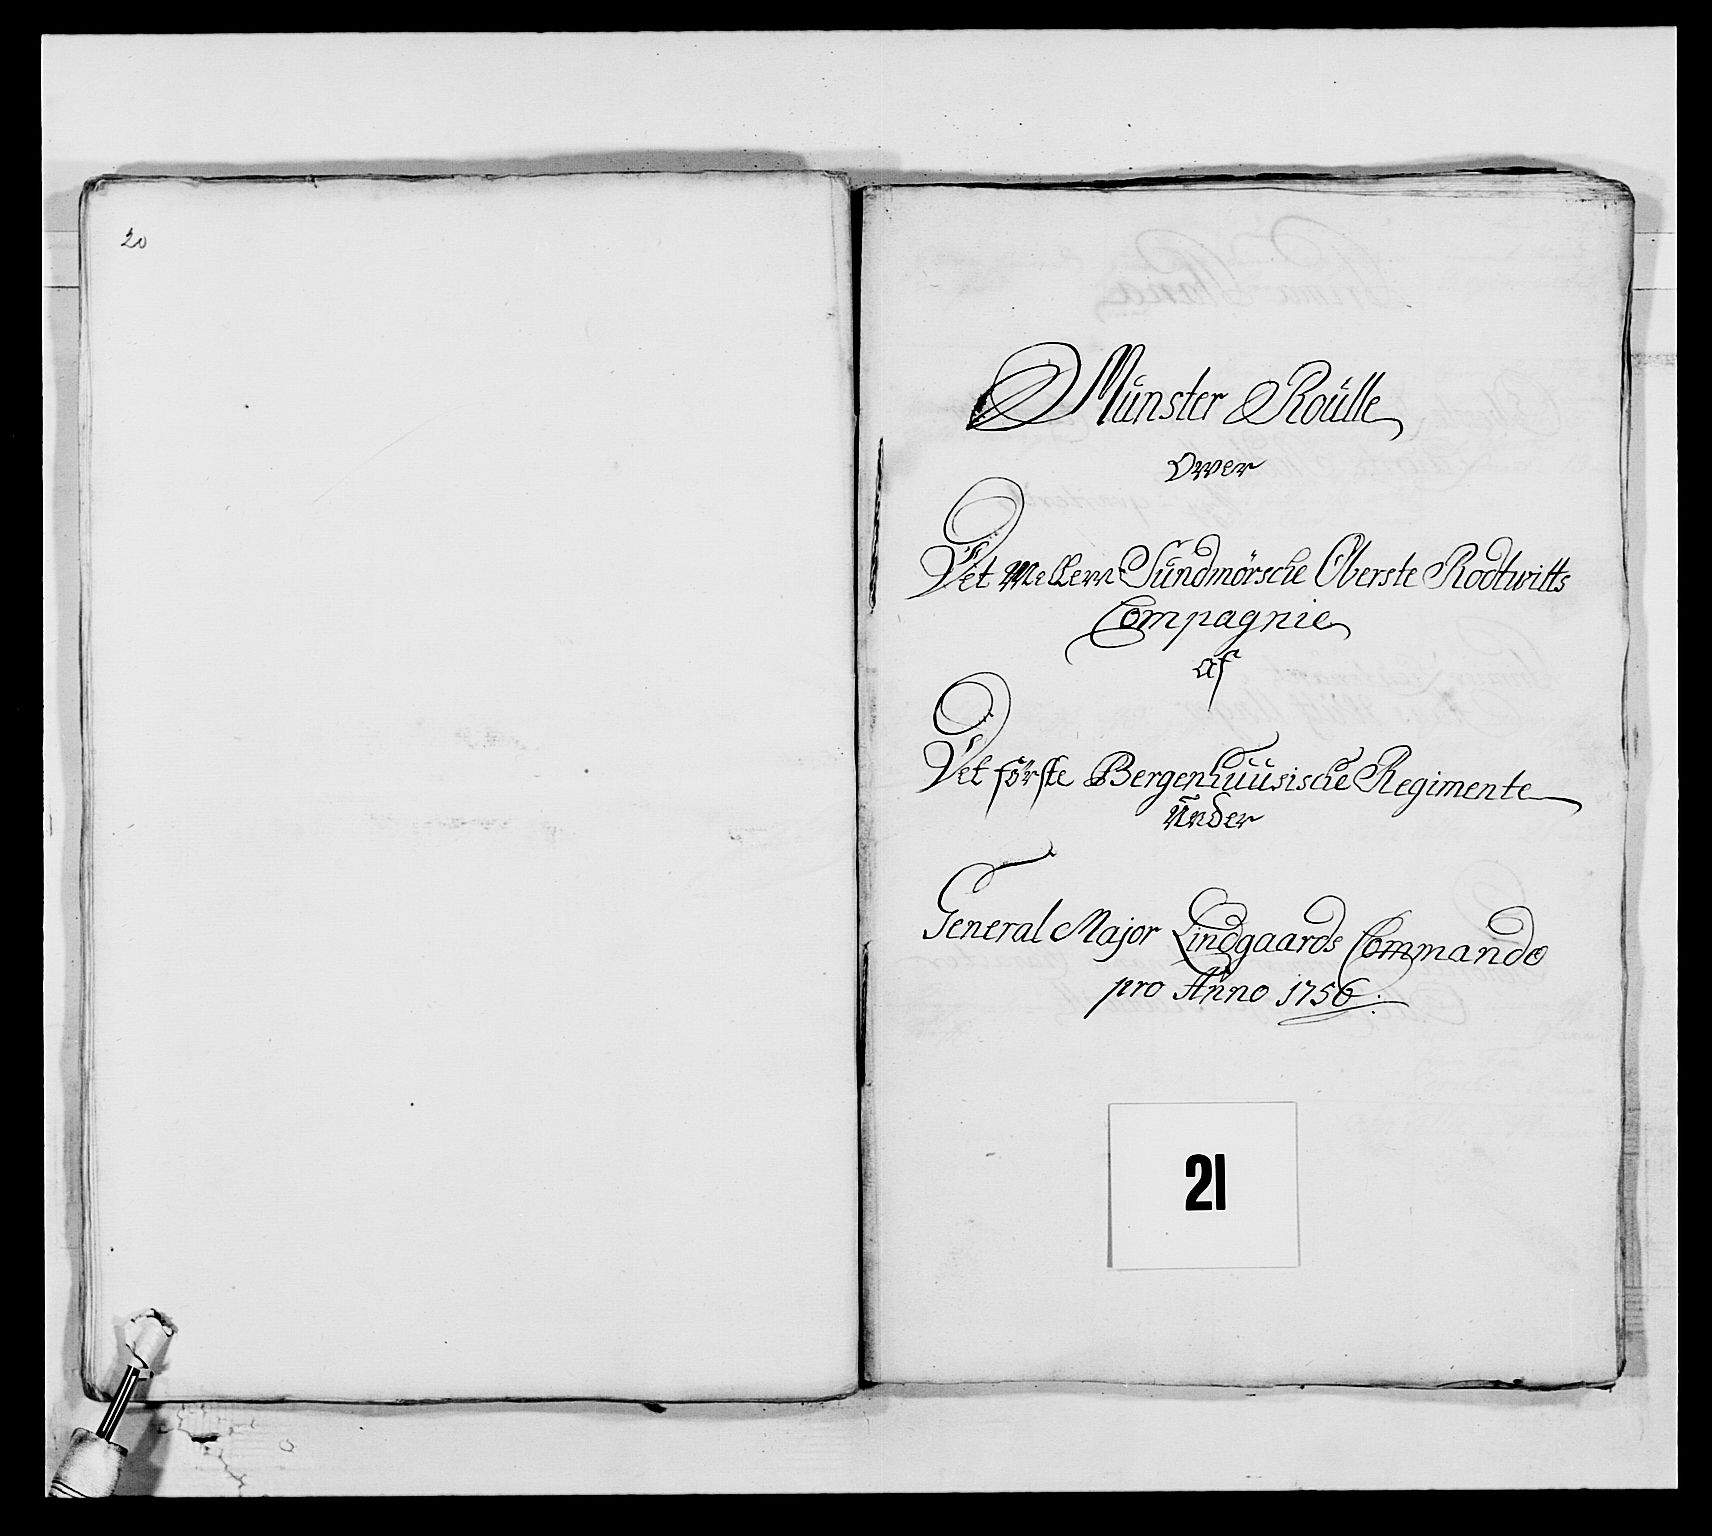 20
Münster Roülle
Over
Det Mellem Sündmörsche Oberste Rodtwitts
Compagnie
af
Det förste Bergenhuüsische Regimente
Ünder
General Major Lindgaards Commando
pro Anno 1756.
21